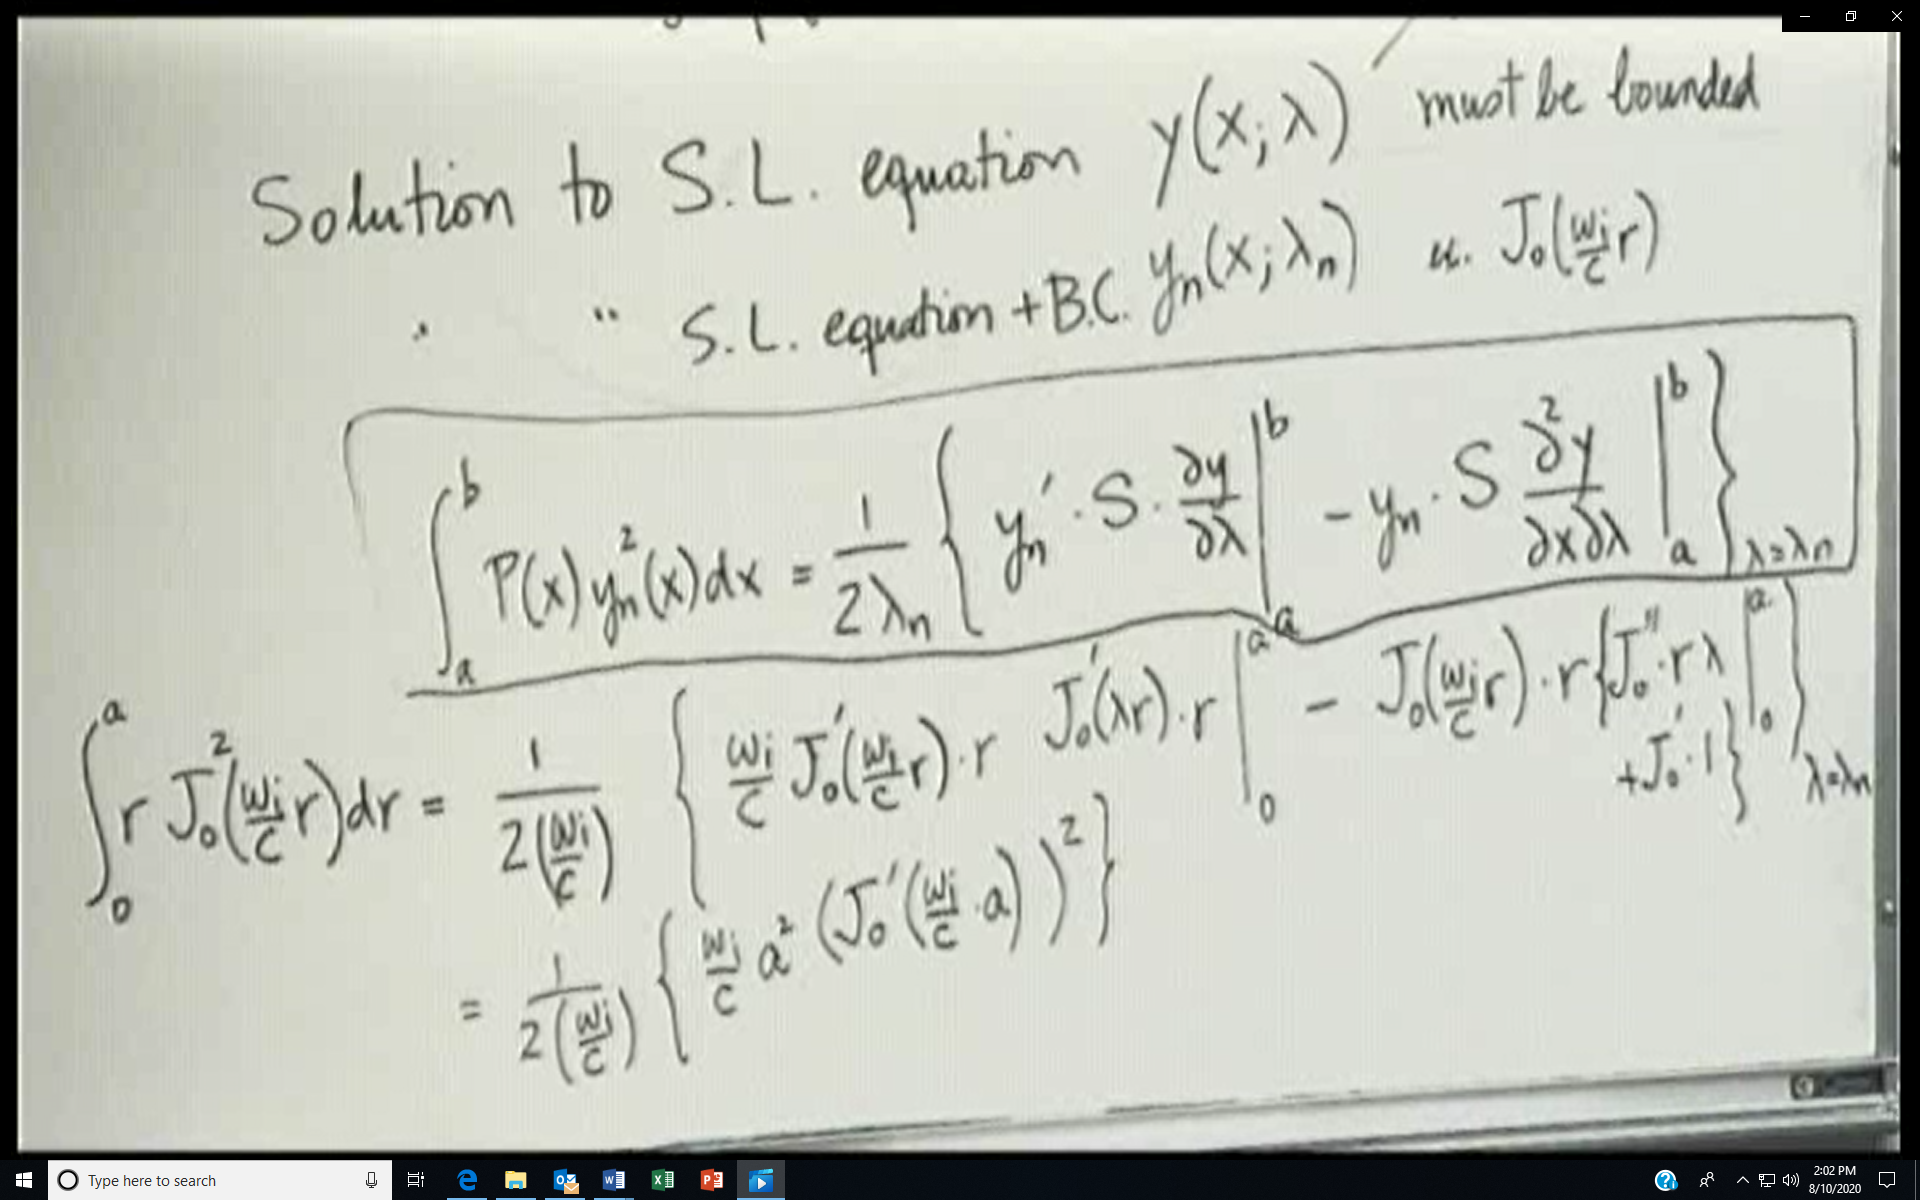 Solution to S.L. equation y(x;λ) must be bounded
" S.L. equation + B.C. yₙ(x;λₙ) J₀(ωᵢ/c r)
∫ₐᵇ P(x) yₙ²(x) dx = 1/(2λₙ) { yₙ' · S · ∂y/∂λ |ₐᵇ − yₙ · S ∂²y/∂x∂λ |ₐᵇ }λ=λₙ
∫₀ᵃ r J₀²(ωᵢ/c r) dr = 1/(2(ωᵢ/c)) { ωᵢ/c J₀'(ωᵢ/c r) · r J₀'(λr) · r |₀ᵃ − J₀(ωᵢ/c r) · r { J₀'' · rλ + J₀' · 1 } |₀ᵃ }λ=λₙ
= 1/(2(ωᵢ/c)) { ωᵢ/c a² (J₀'(ωᵢ/c · a))² }
Type here to search
2:02 PM
8/10/2020